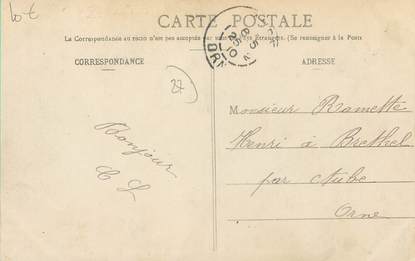 10 €
CARTE POSTALE
La Correspondance au recto n'est pas acceptée par tous les pays Etrangers. (Se renseigner à la Poste)
CORRESPONDANCE
ADRESSE
27
Bonjour
Monsieur Ramette
Henri à Brethel
par Aube
Orne